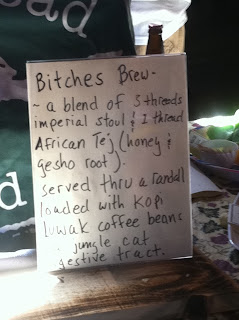 Bitches Brew-
~ a blend of 3 threads
imperial stout & 1 thread
African Tej (honey &
gesho root).
served thru a randall
loaded with Kopi
Luwak coffee beans
jungle cat
gestive tract.